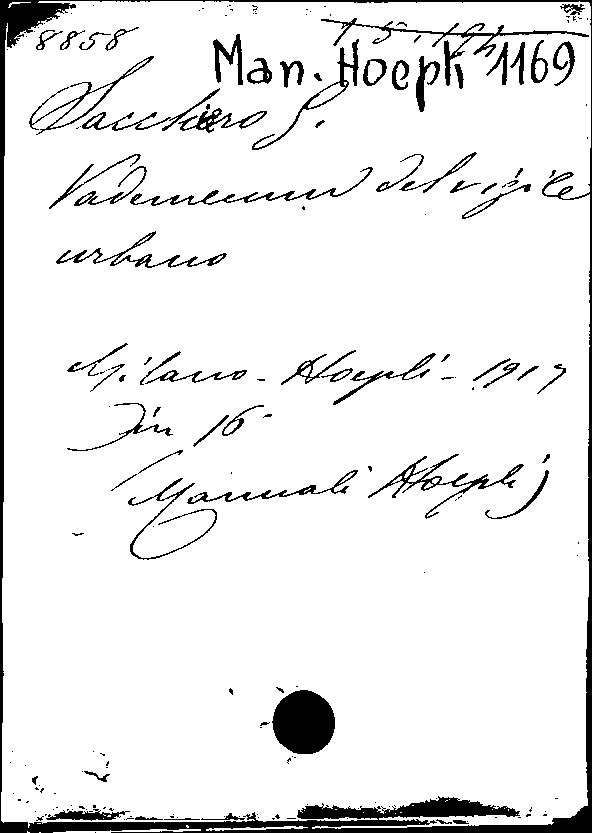 8858
Man. Hoepli 1169
Sacchiero G.
Vademecum del vigile
urbano
Milano - Hoepli - 1917
in 16°
(Manuali Hoepli)